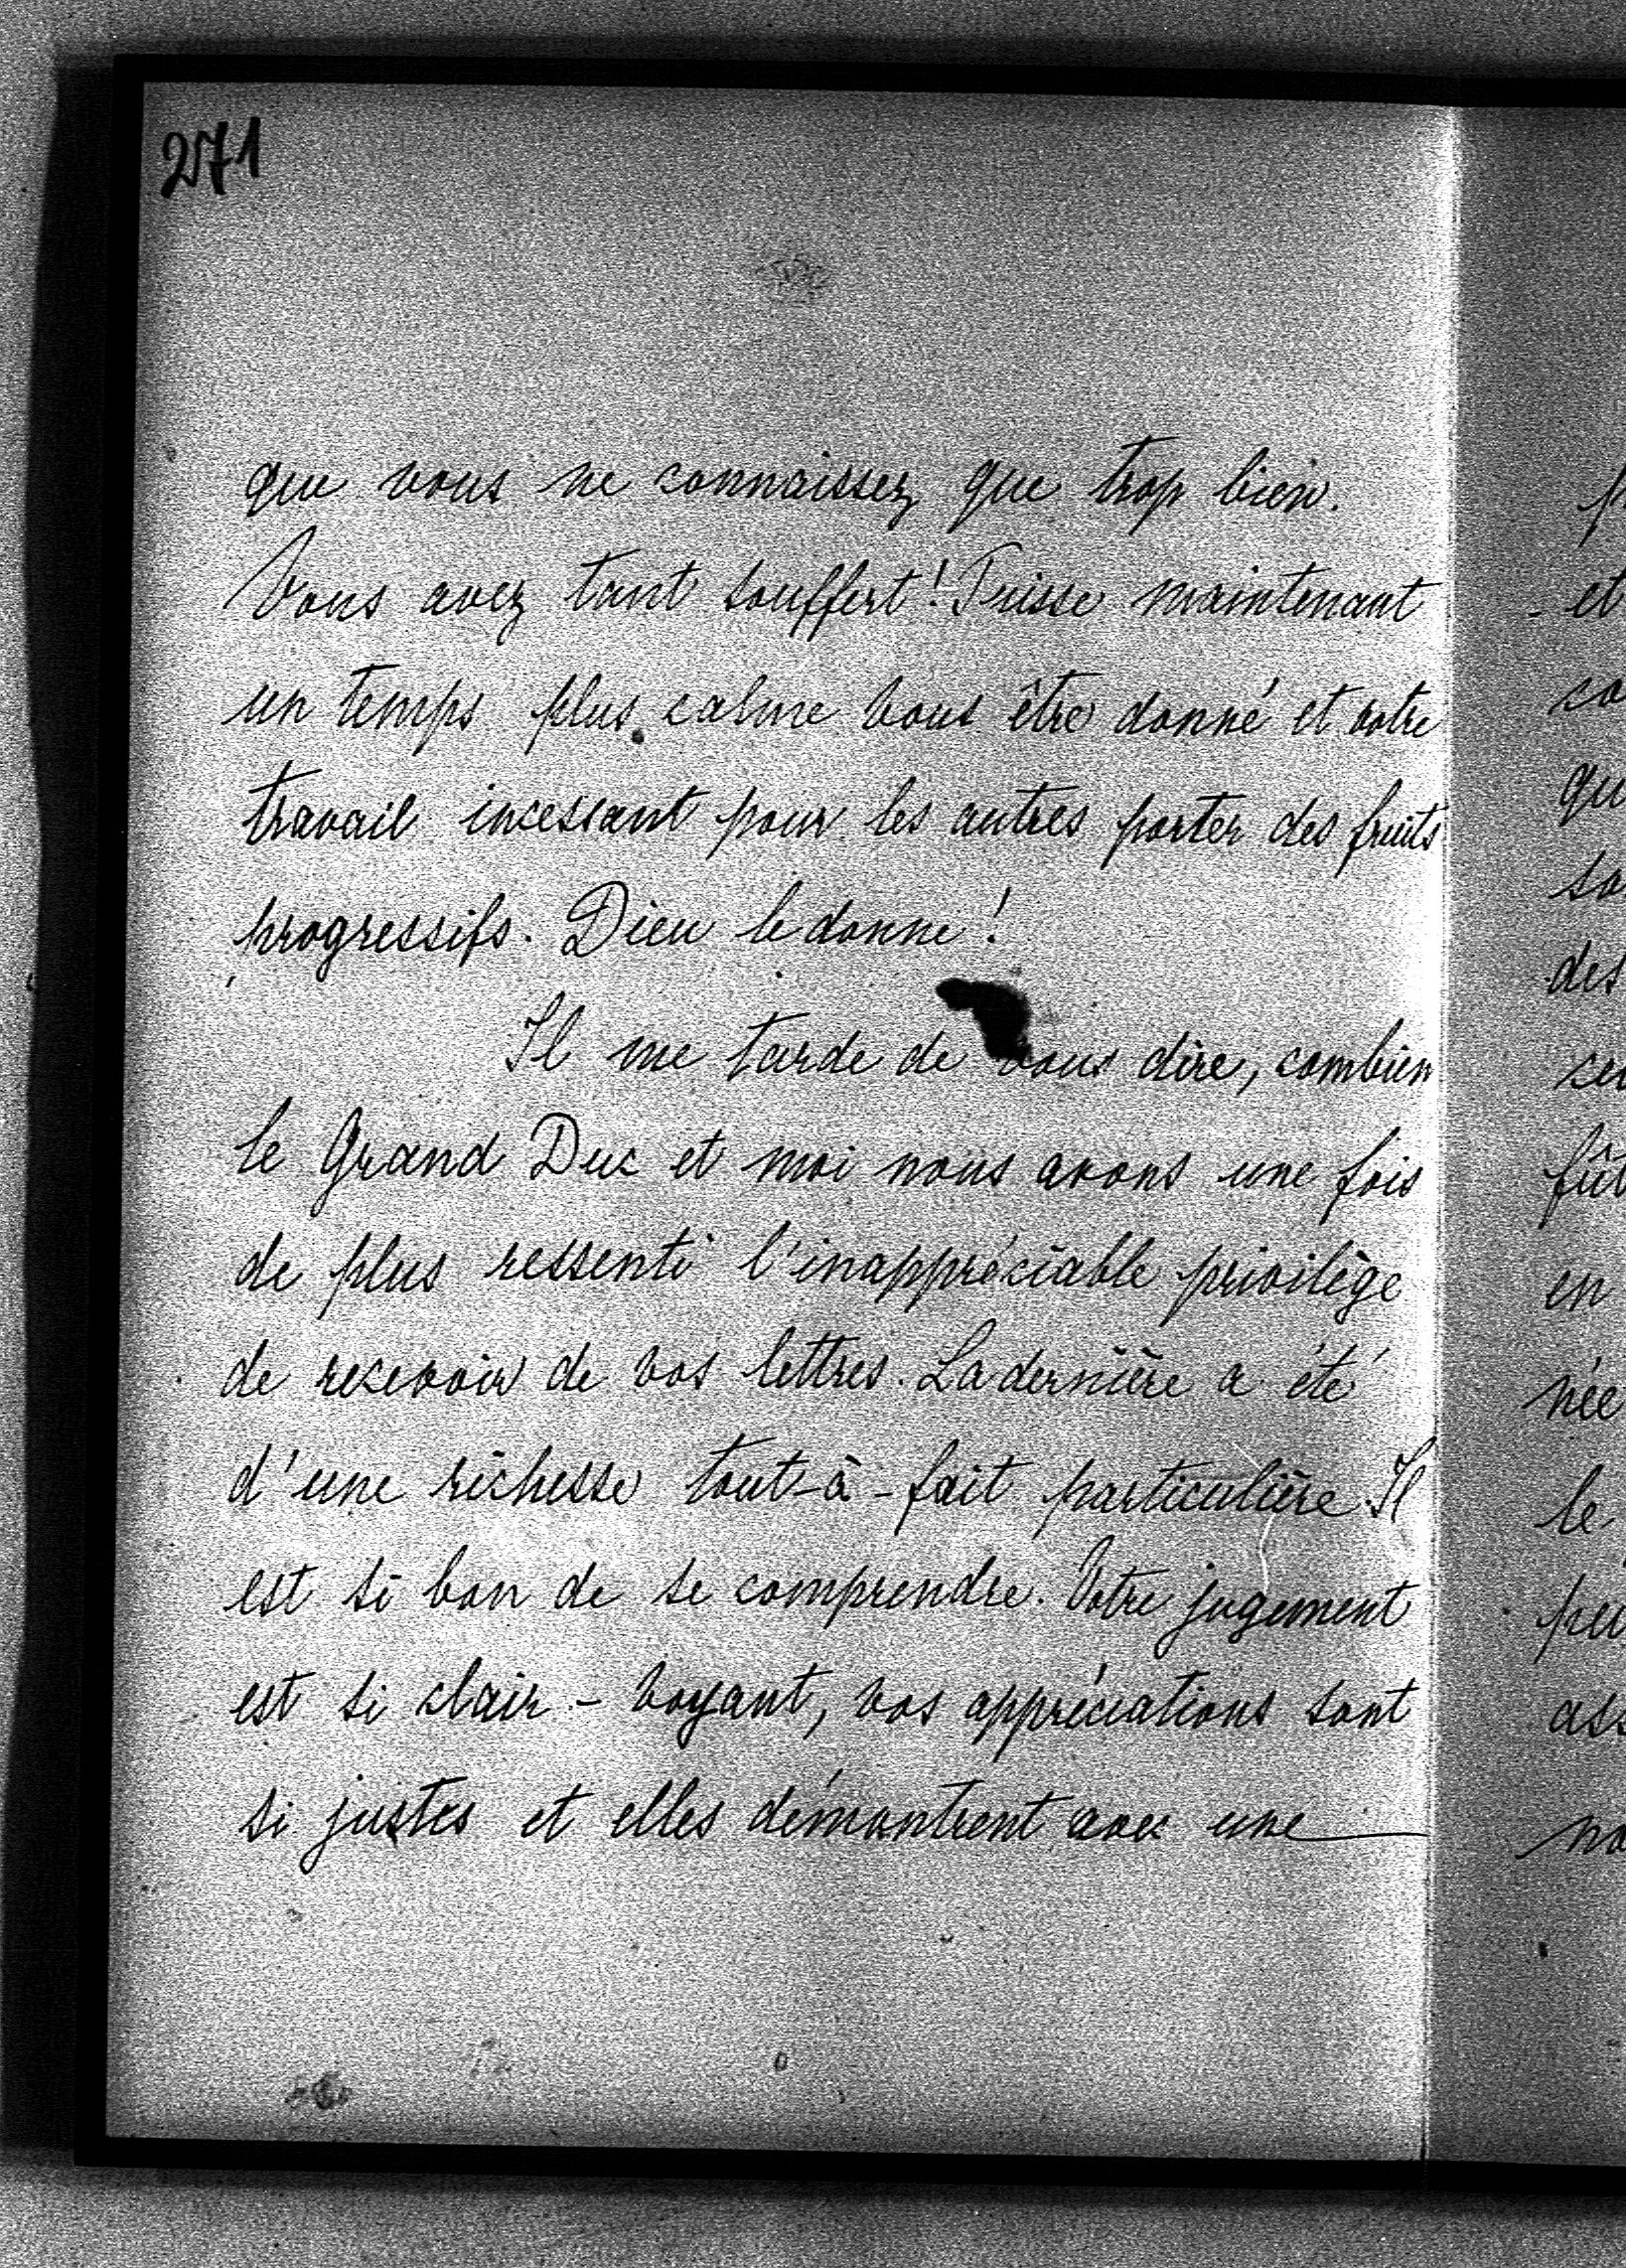 271
que vous ne connaissez que trop bien.
Vous avez tant souffert! Puisse maintenant
un temps plus calme vous être donné et votre
travail incessant pour les autres porter des fruits
progressifs. Dieu le donne!
Il me tarde de vous dire, combien
le Grand Duc et moi nous avons une fois
de plus ressenti l'inappréciable privilège
de recevoir de vos lettres. La dernière a été
d'une richesse tout-à-fait particulière. Il
est si bon de se comprendre. Votre jugement
est si clair-voyant, vos appréciations sont
si justes et elles démontrent avec une
et
co
qu
so
des
fût
en
née
le
peu
ass
no